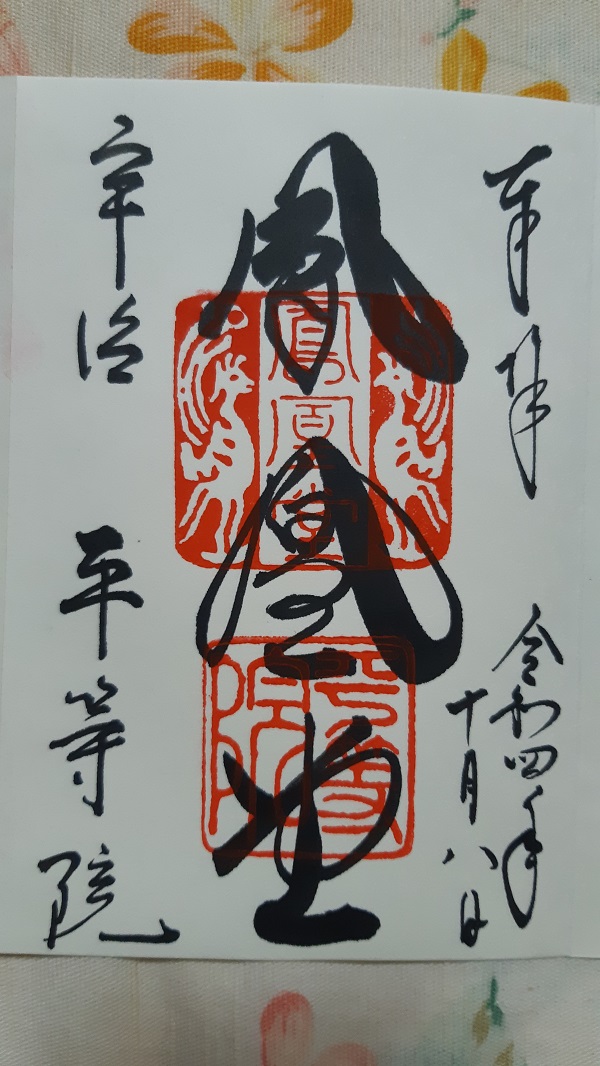 奉拝
令和四年
十月八日
鳳凰堂
鳳凰堂
宇治
平等院